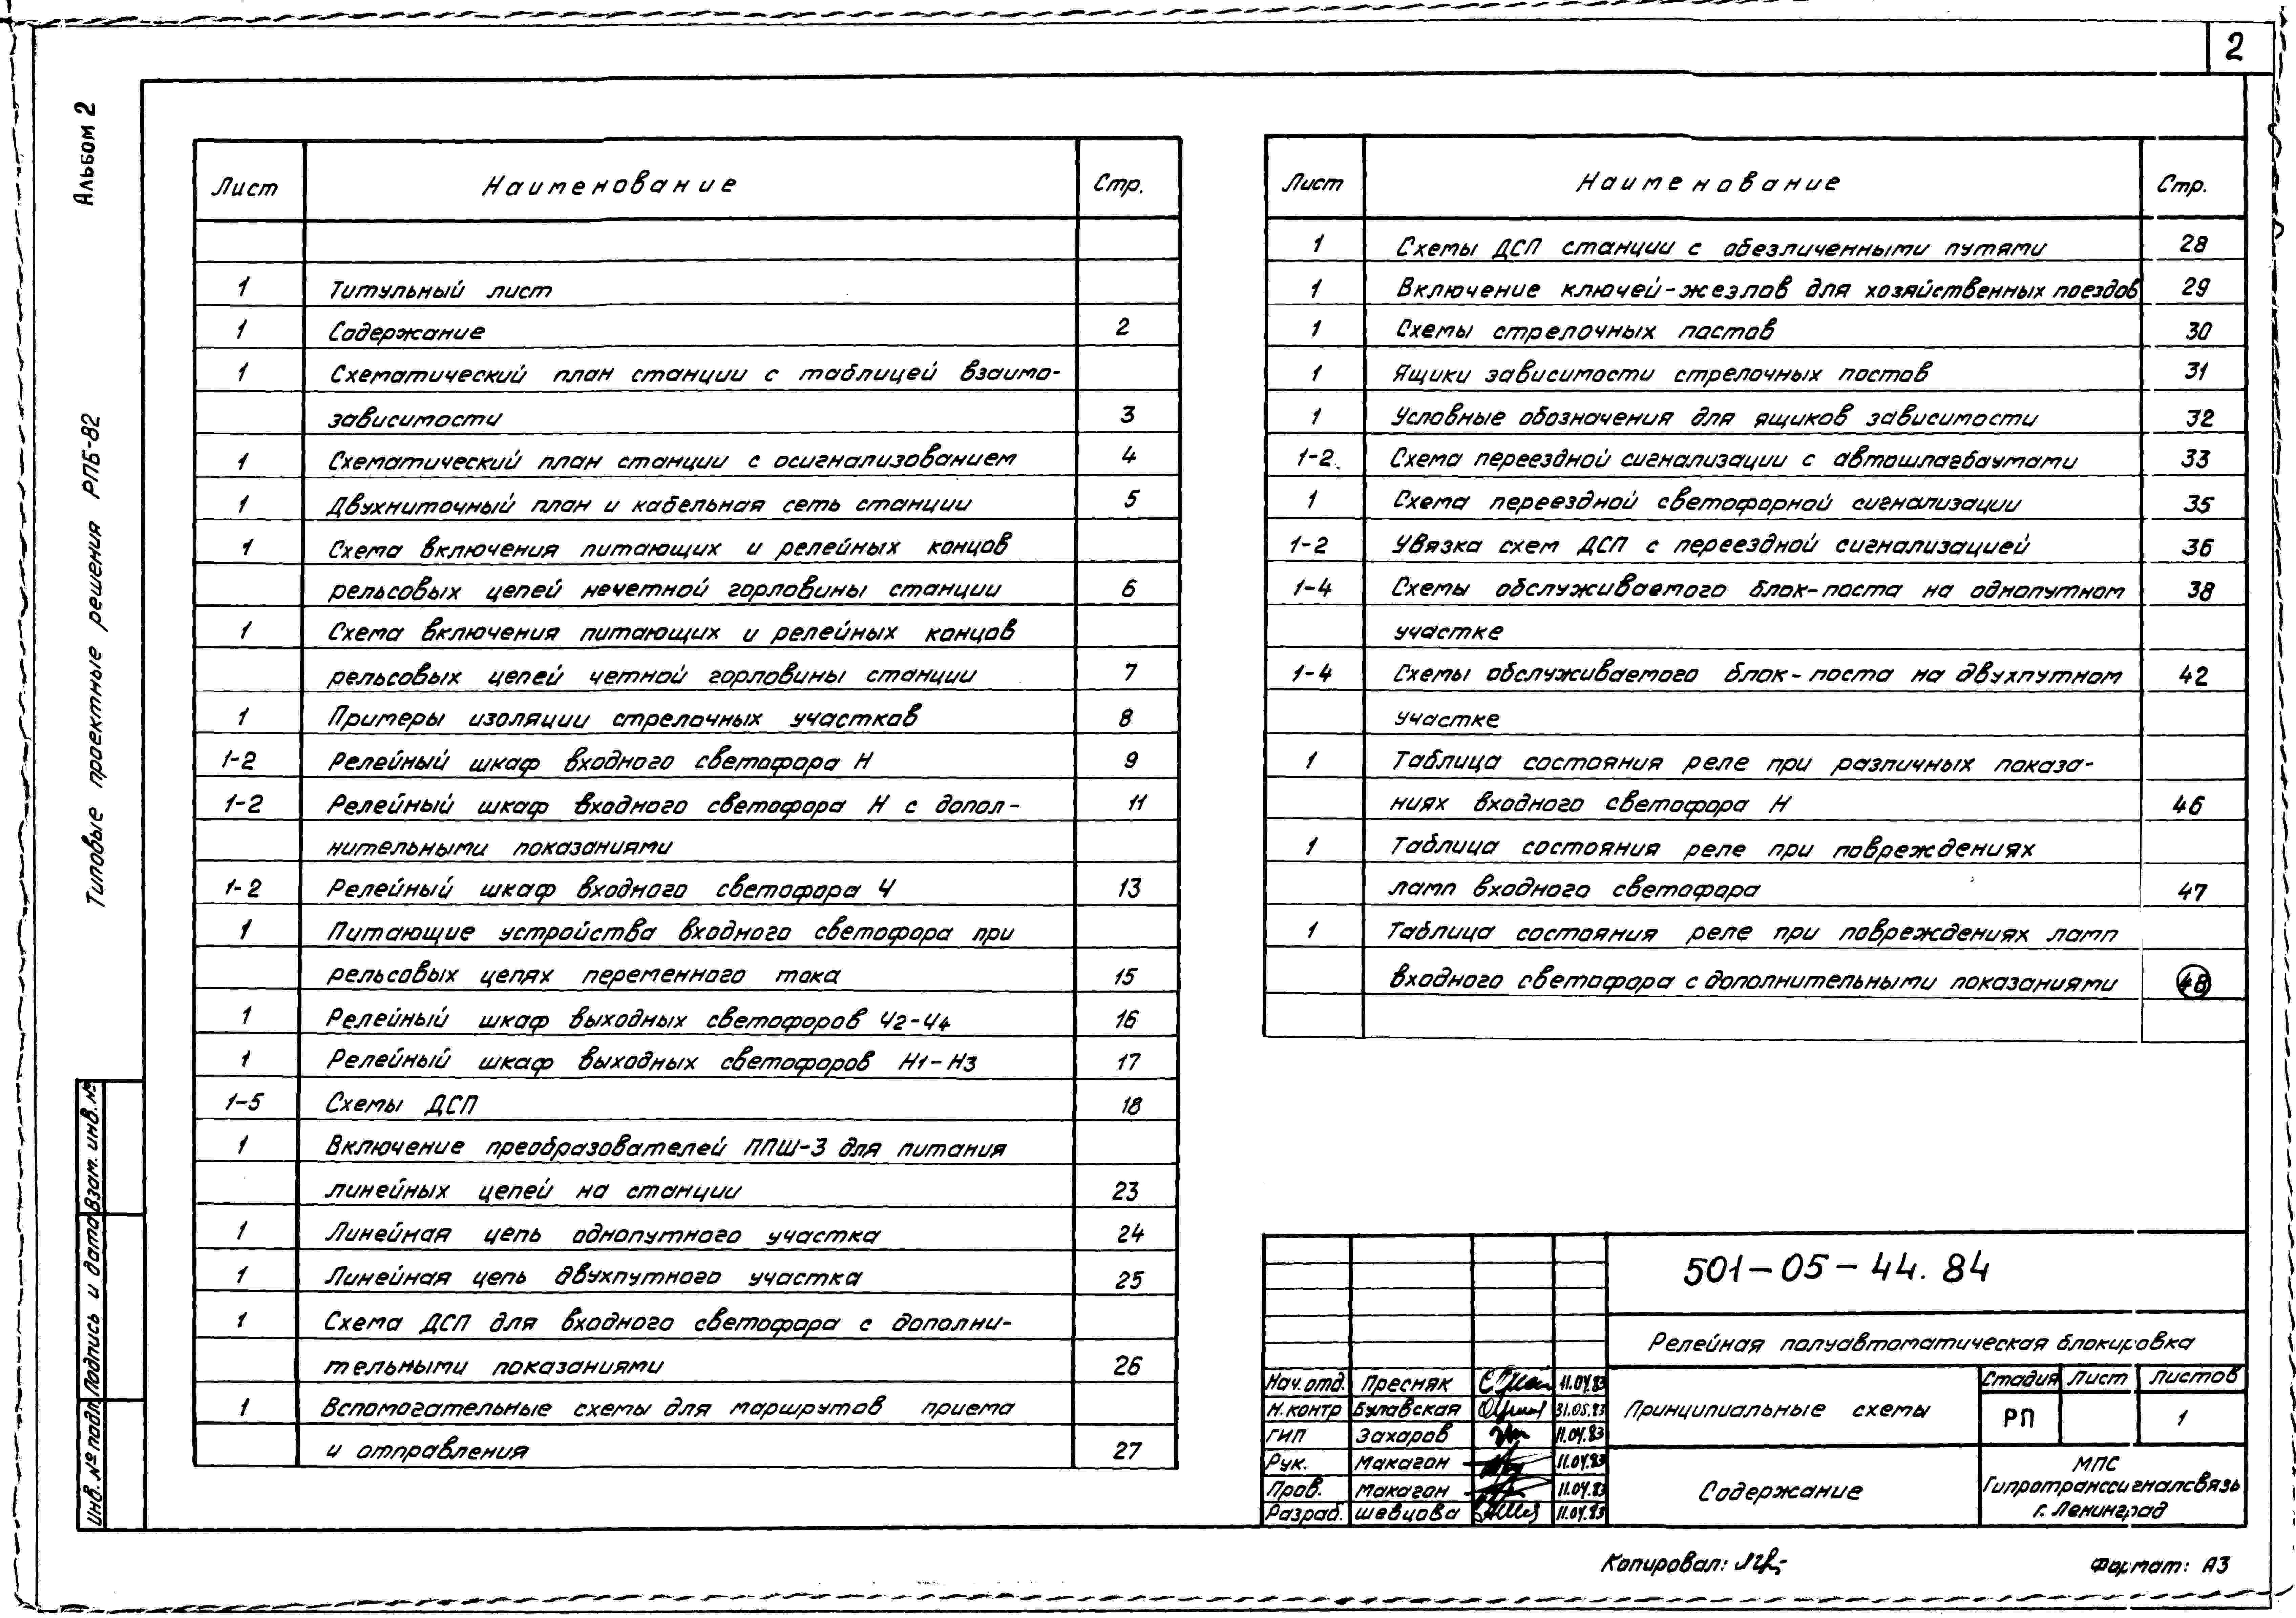 2
Альбом 2
Типовые проектные решения РПБ-82
Лист Наименование Стр.
1 Титульный лист
1 Содержание 2
1 Схематический план станции с таблицей взаимо-
зависимости 3
1 Схематический план станции с осигнализованием 4
1 Двухниточный план и кабельная сеть станции 5
1 Схема включения питающих и релейных концов
рельсовых цепей нечетной горловины станции 6
1 Схема включения питающих и релейных концов
рельсовых цепей четной горловины станции 7
1 Примеры изоляции стрелочных участков 8
1-2 Релейный шкаф входного светофора Н 9
1-2 Релейный шкаф входного светофора Н с допол- 11
нительными показаниями
1-2 Релейный шкаф входного светофора Ч 13
1 Питающие устройства входного светофора при
рельсовых цепях переменного тока 15
1 Релейный шкаф выходных светофоров Ч2-Ч4 16
1 Релейный шкаф выходных светофоров Н1-Н3 17
1-5 Схемы ДСП 18
1 Включение преобразователей ППШ-3 для питания
линейных цепей на станции 23
1 Линейная цепь однопутного участка 24
1 Линейная цепь двухпутного участка 25
1 Схема ДСП для входного светофора с дополни-
тельными показаниями 26
1 Вспомогательные схемы для маршрутов приема
и отправления 27
Лист Наименование Стр.
1 Схемы ДСП станции с обезличенными путями 28
1 Включение ключей-жезлов для хозяйственных поездов 29
1 Схемы стрелочных постов 30
1 Ящики зависимости стрелочных постов 31
1 Условные обозначения для ящиков зависимости 32
1-2 Схема переездной сигнализации с автошлагбаумами 33
1 Схема переездной светофорной сигнализации 35
1-2 Увязка схем ДСП с переездной сигнализацией 36
1-4 Схемы обслуживаемого блок-поста на однопутном 38
участке
1-4 Схемы обслуживаемого блок-поста на двухпутном 42
участке
1 Таблица состояния реле при различных показа-
ниях входного светофора Н 46
1 Таблица состояния реле при повреждениях
ламп входного светофора 47
1 Таблица состояния реле при повреждениях ламп
входного светофора с дополнительными показаниями 48
501-05-44.84
Релейная полуавтоматическая блокировка
Нач.отд. Пресняк 11.04.83
Н.контр Булавская 31.05.83
ГИП Захаров 11.04.83
Рук. Макаган 11.04.83
Пров. Макаган 11.04.83
Разраб. Шевцова 11.04.83
Принципиальные схемы
Стадия Лист Листов
РП 1
Содержание
МПС
Гипротранссигналсвязь
г. Ленинград
Инв. № подл. Подпись и дата Взам. инв. №
Копировал:
Формат: А3